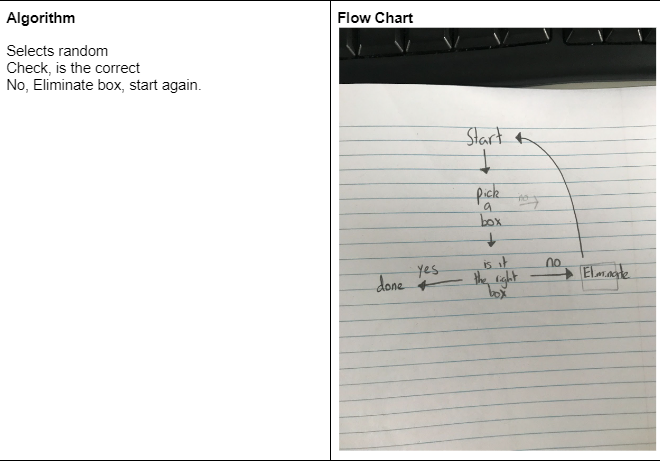 Algorithm
Selects random
Check, is the correct
No, Eliminate box, start again.
Flow Chart
Start
Pick
a
box
no
is it
the right
box
yes
done
no
Eliminate